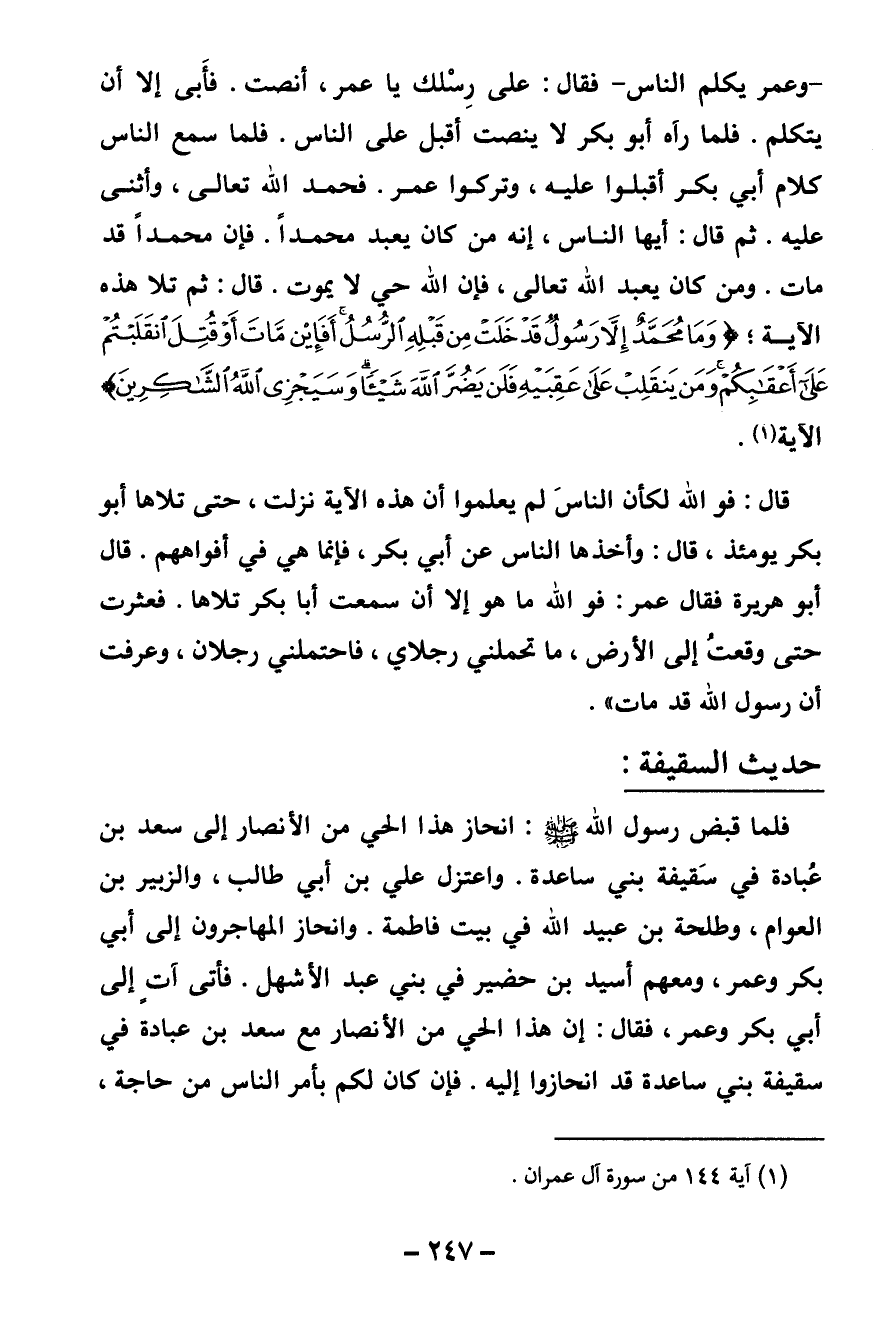 -وعمر يكلم الناس- فقال : على رِسْلك يا عمر ، أنصت . فأَبى إلا أن
يتكلم . فلما رآه أبو بكر لا ينصت أقبل على الناس . فلما سمع الناس
كلام أبي بكر أقبلوا عليه ، وتركوا عمر . فحمد الله تعالى ، وأثنى
عليه . ثم قال : أيها الناس ، إنه من كان يعبد محمداً . فإن محمداً قد
مات . ومن كان يعبد الله تعالى ، فإن الله حي لا يموت . قال : ثم تلا هذه
الآية ؛ ﴿ وَمَا مُحَمَّدٌ إِلَّا رَسُولٌ قَدْ خَلَتْ مِن قَبْلِهِ ٱلرُّسُلُ ۚ أَفَإِيْن مَّاتَ أَوْ قُتِلَ ٱنقَلَبْتُمْ
عَلَىٰٓ أَعْقَٰبِكُمْ ۚ وَمَن يَنقَلِبْ عَلَىٰ عَقِبَيْهِ فَلَن يَضُرَّ ٱللَّهَ شَيْـًٔا ۗ وَسَيَجْزِى ٱللَّهُ ٱلشَّٰكِرِينَ ﴾
الآية(١) .
قال : فو الله لكأن الناسَ لم يعلموا أن هذه الآية نزلت ، حتى تلاها أبو
بكر يومئذ ، قال : وأخذها الناس عن أبي بكر ، فإنما هي في أفواههم . قال
أبو هريرة فقال عمر : فو الله ما هو إلا أن سمعت أبا بكر تلاها . فعثرت
حتى وقعتُ إلى الأرض ، ما تحملني رجلاي ، فاحتملني رجلان ، وعرفت
أن رسول الله قد مات» .
حديث السقيفة :
فلما قبض رسول الله ﷺ : انحاز هذا الحي من الأنصار إلى سعد بن
عُبادة في سَقيفة بني ساعدة . واعتزل علي بن أبي طالب ، والزبير بن
العوام ، وطلحة بن عبيد الله في بيت فاطمة . وانحاز المهاجرون إلى أبي
بكر وعمر ، ومعهم أسيد بن حضير في بني عبد الأشهل . فأتى آتٍ إلى
أبي بكر وعمر ، فقال : إن هذا الحي من الأنصار مع سعد بن عبادة في
سقيفة بني ساعدة قد انحازوا إليه . فإن كان لكم بأمر الناس من حاجة ،
(١) آية ١٤٤ من سورة آل عمران .
- ٢٤٧ -